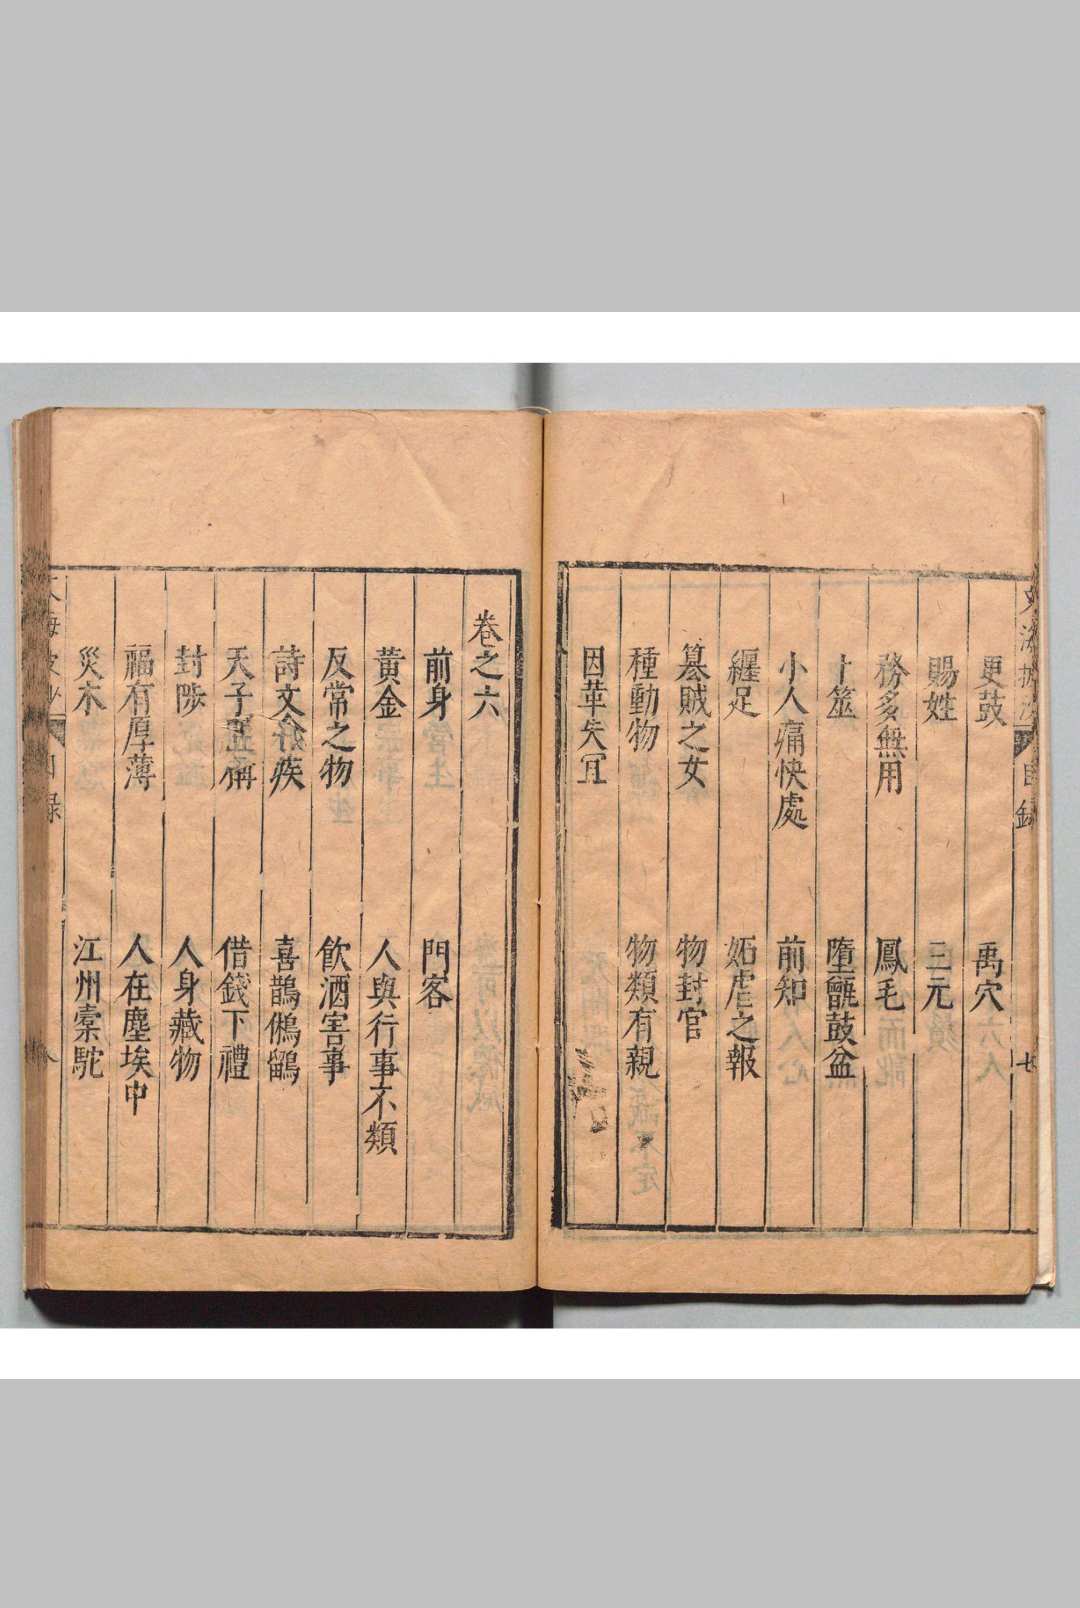 文海披沙 目錄 七
更鼓 禹穴
賜姓 三元
務多無用 鳳毛
卜筮 墮甑鼓盆
小人痛快處 前知
纏足 妬虐之報
墓賊之女 物封官
種動物 物類有親
因革失宜
卷之六
前身 門客
黃金 人與行事不類
反常之物 飲酒害事
詩文疾 喜鵲鵂鶹
天子並稱 借錢下禮
封陟 人身藏物
福有厚薄 人在塵埃中
災木 江州橐駝
海披沙 目錄 八